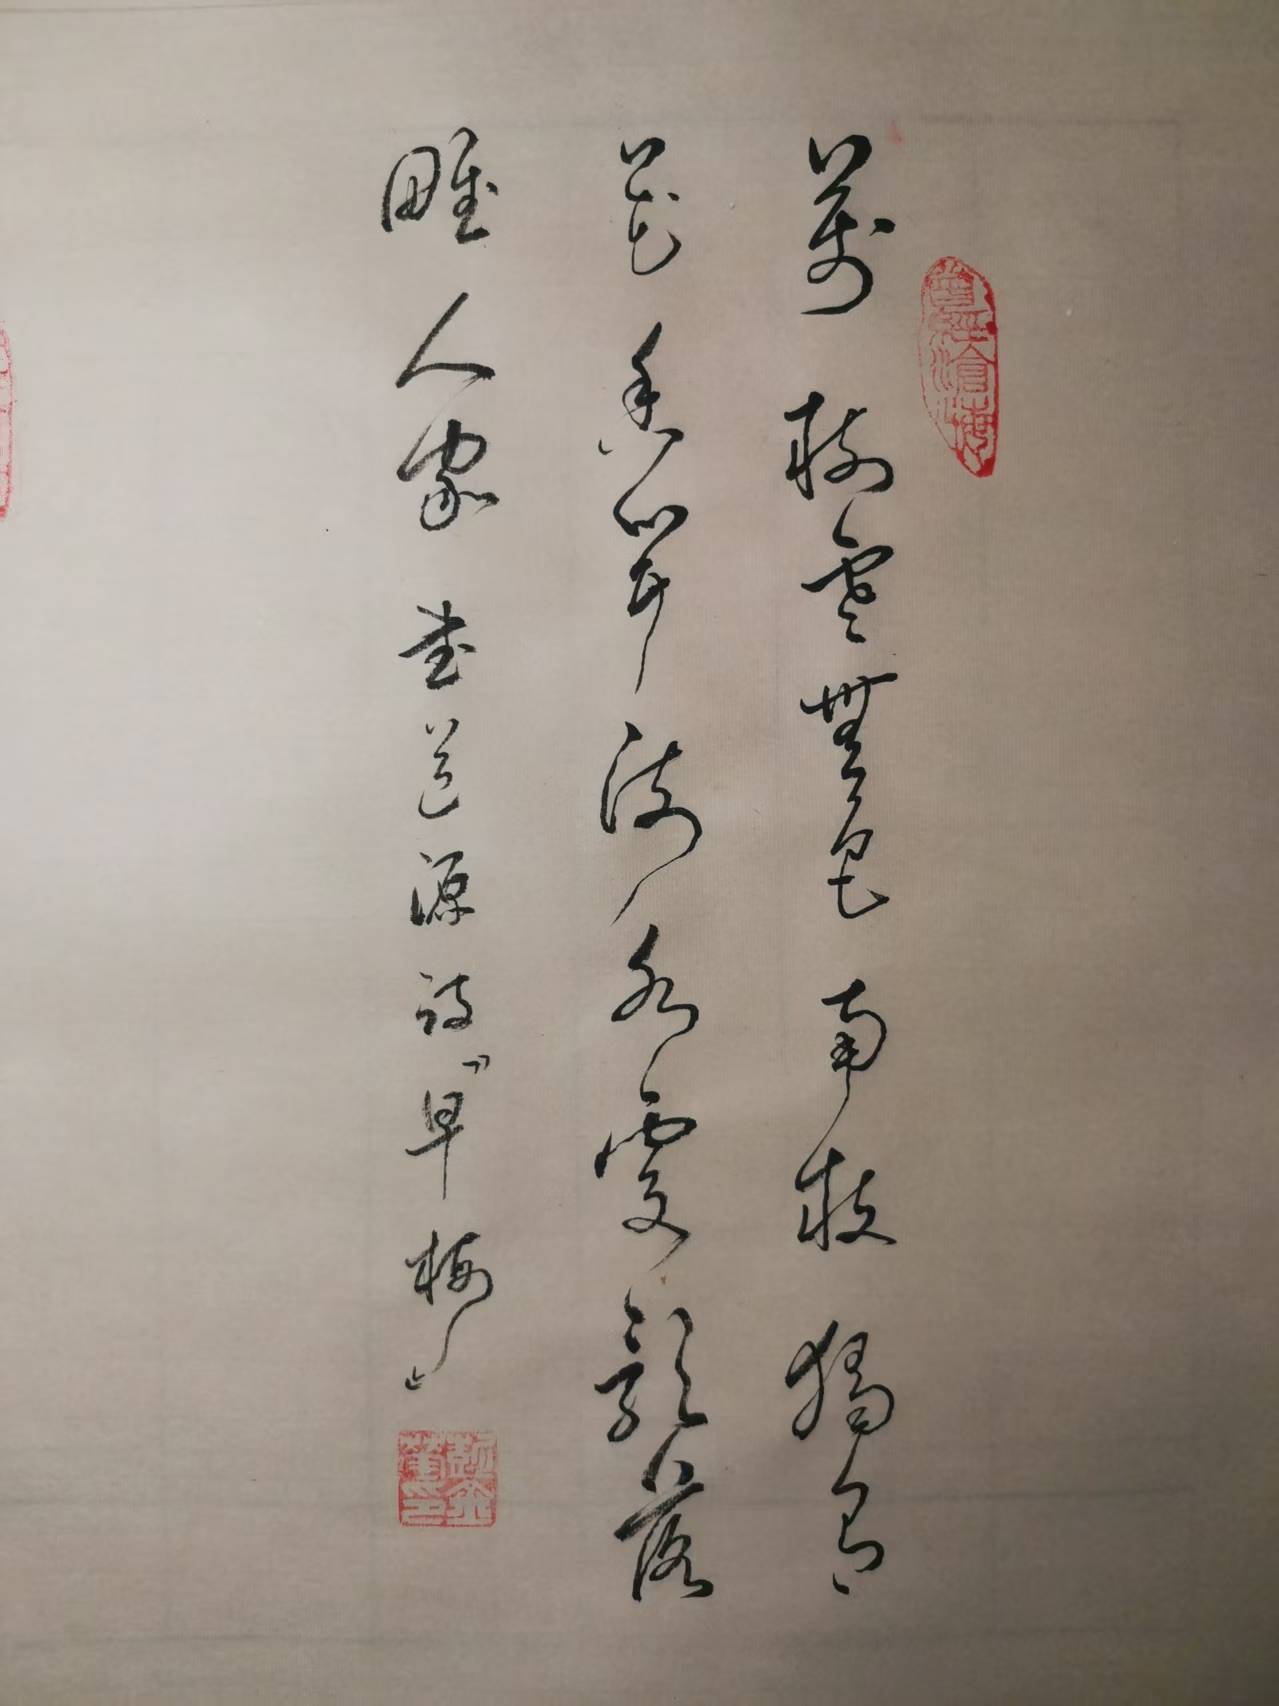 曾經滄海
萬樹寒無色南枝獨有
花香聞流水處影落
野人家書道源詩「早梅」